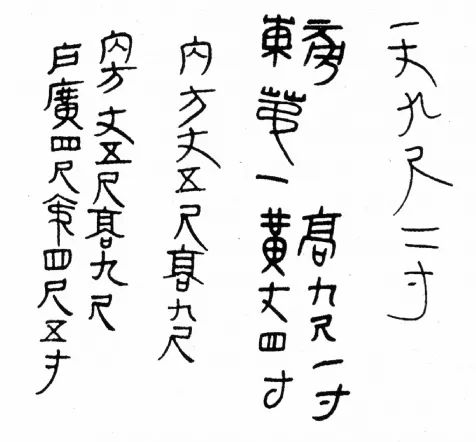 一丈九尺二寸
旁高九尺一寸
東第一黃丈四寸
內方丈五尺高九尺
內方丈五尺高九尺
廣四尺四尺五寸